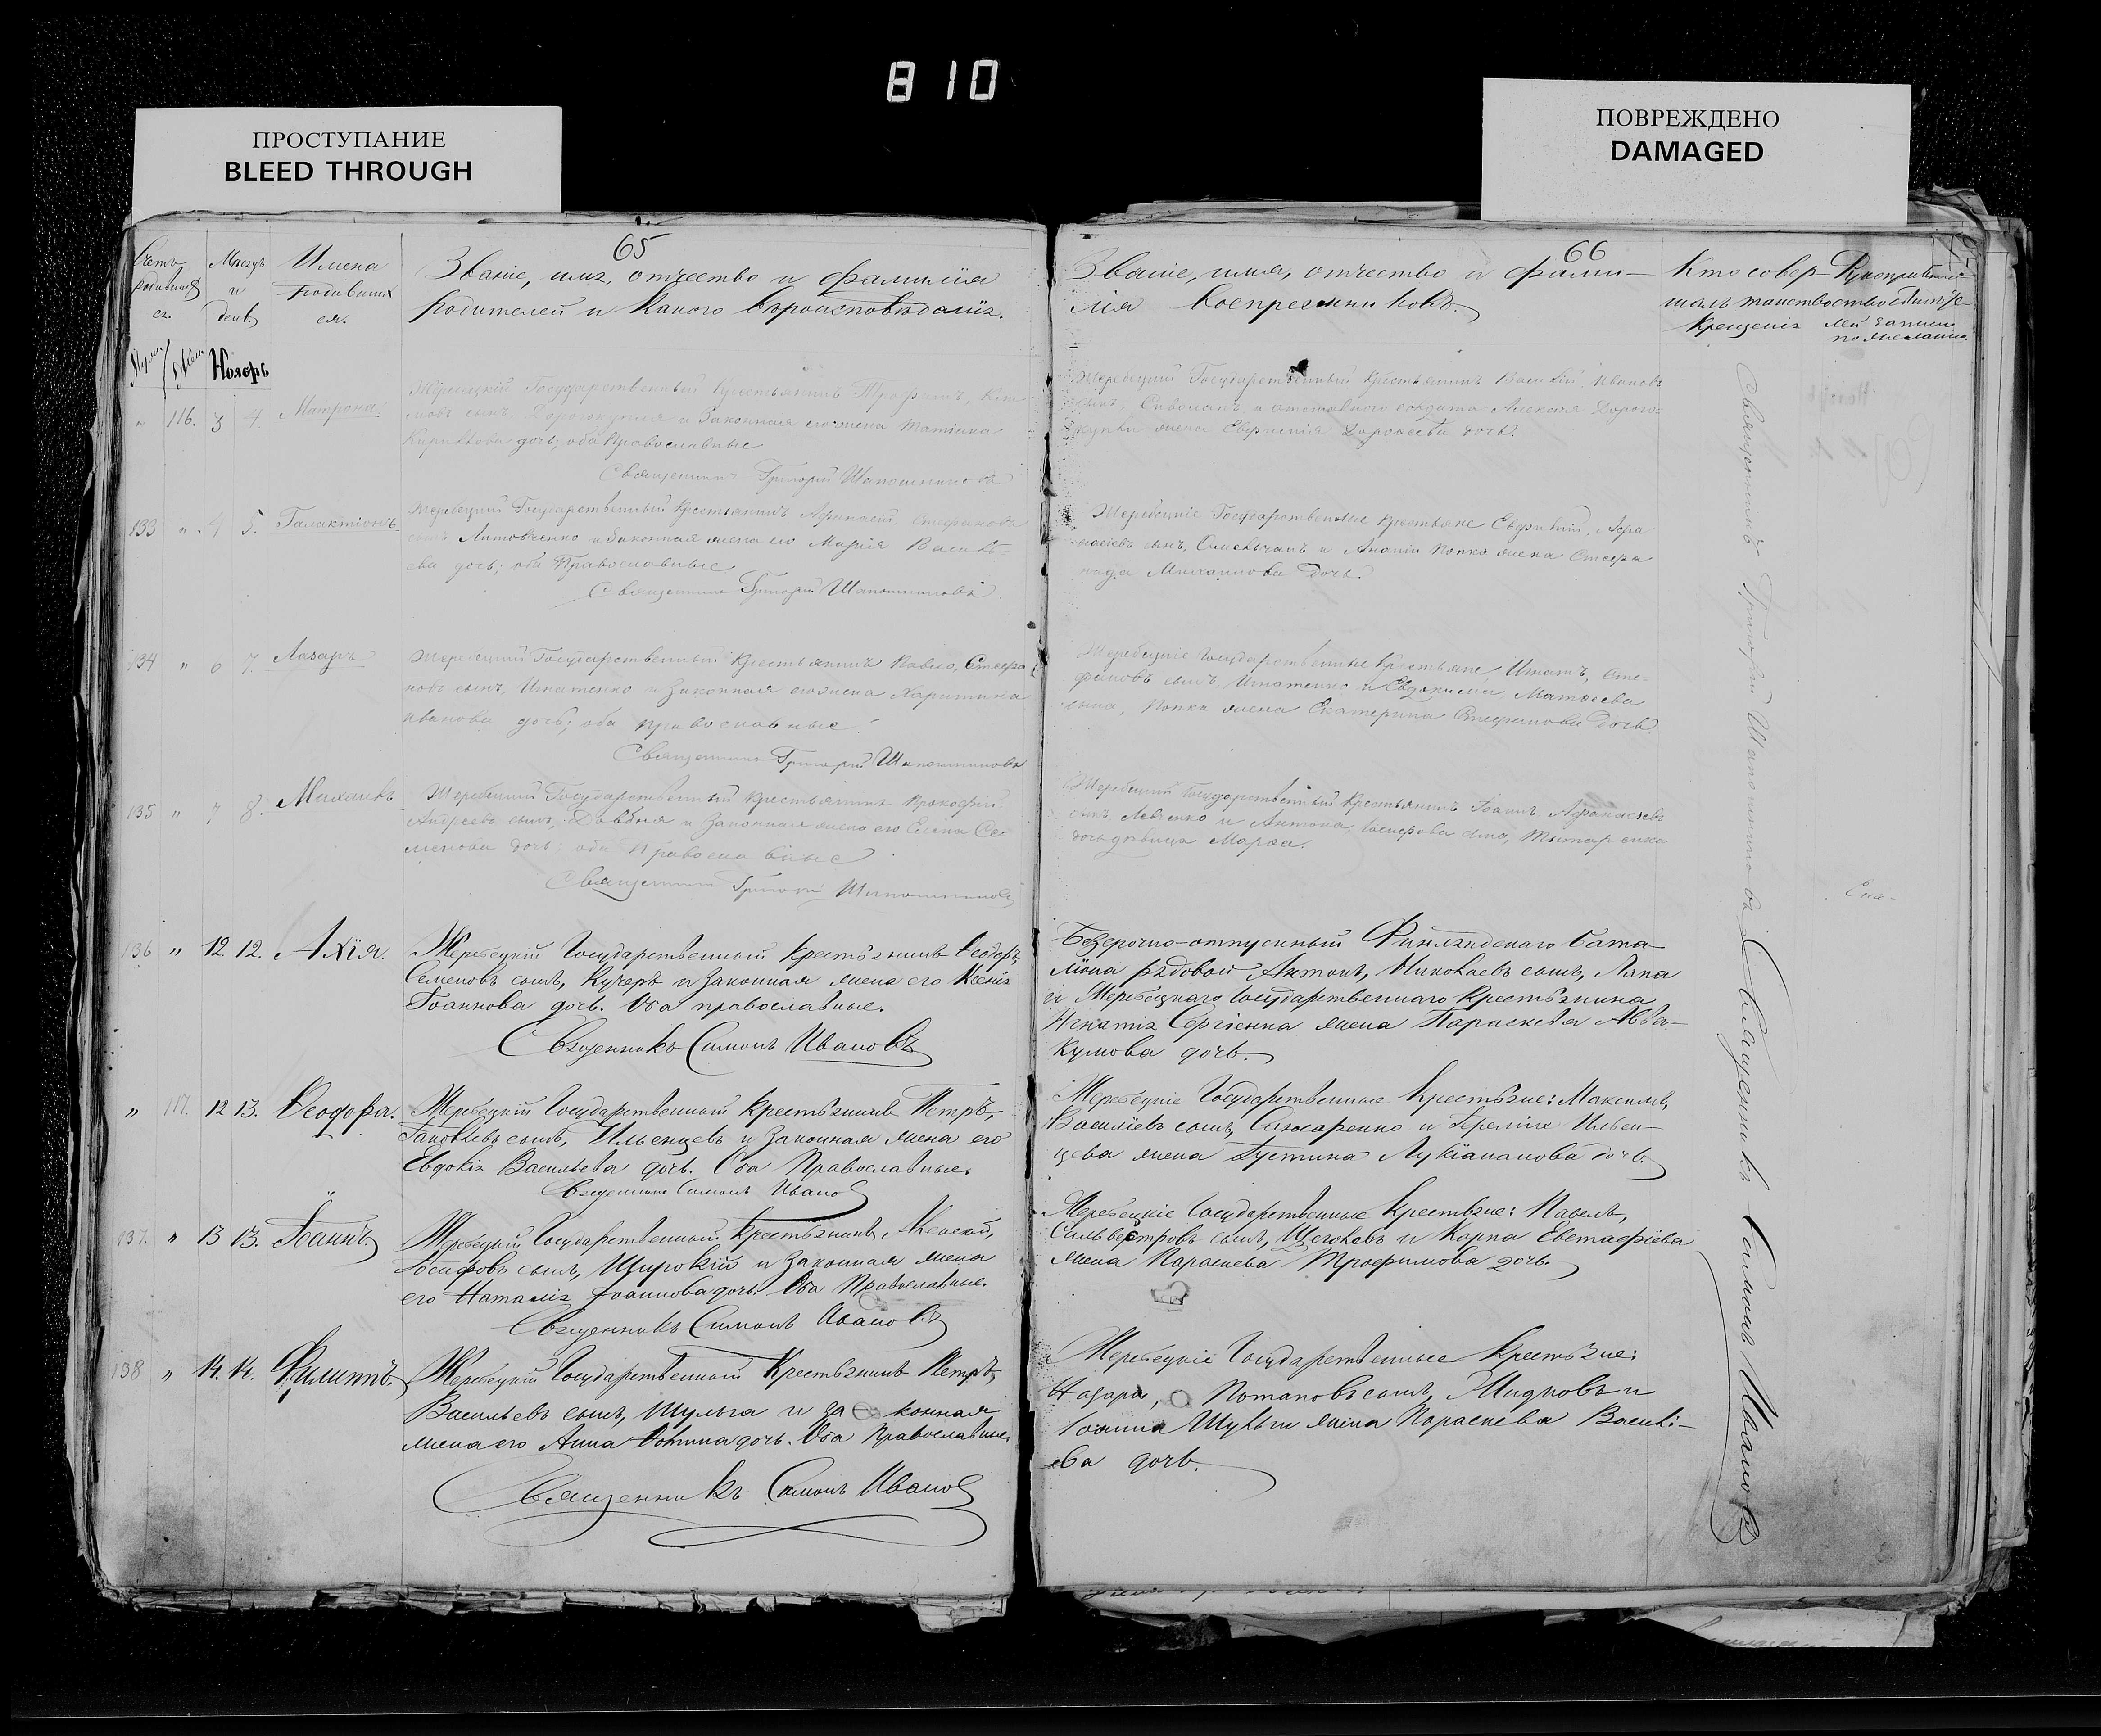 810
ПРОСТУПАНИЕ
BLEED THROUGH
ПОВРЕЖДЕНО
DAMAGED
65
Счетъ родившихся.
Месяцъ и день.
Имена родившихся.
Званіе, имя, отчество и фамилія
родителей и какого вѣроисповѣданія.
Ноябрь
" 116. 3 4. Матрона
Жеребецкій Государственный крестьянинъ Трофимъ,
сынъ, и законная его жена Татіана
Кириллова дочь; оба Православные
Священникъ Григорій Шапошниковъ
133 " 4 5. Галактіонъ
Жеребецкій Государственный крестьянинъ Афанасій Стефановъ
сынъ Литовченко и законная жена его Марія Василье-
ва дочь; оба Православные
Священникъ Григорій Шапошниковъ
134 " 6 7. Лазарь
Жеребецкій Государственный крестьянинъ Павло, Стефа
новъ сынъ, Игнатенко и законная его жена Харитина
Иванова дочь; оба православные
Священникъ Григорій Шапошниковъ
135 " 7 8. Михаилъ
Жеребецкій Государственный крестьянинъ Прокофій
Андреевъ сынъ, Довбня и законная жена его Елена Се
менова дочь; оба Православные
Священникъ Григорій Шапошниковъ
136 " 12 12. Ахія.
Жеребецкій Государственный крестьянинъ Ѳеодоръ,
Семеновъ сынъ, Кучеръ и законная жена его Ксенія
Іоаннова дочь. Оба православные.
Священникъ Симонъ Ивановъ
" 117. 12 13. Ѳеодора.
Жеребецкій Государственный крестьянинъ Петръ,
Іаковлевъ сынъ, Ильенцевъ и законная жена его
Евдокія Васильева дочь. Оба Православные.
Священникъ Симонъ Ивановъ
137. " 13 13. Іоаннъ
Жеребецкій Государственный крестьянинъ Алексей,
Іосифовъ сынъ, Широкій и законная жена
его Наталія Іоаннова дочь. Оба Православные.
Священникъ Симонъ Ивановъ
138 " 14. 14. Филиппъ.
Жеребецкій Государственный крестьянинъ Петръ,
Васильевъ сынъ, Шульга и законная
жена его Анна Ѳомина дочь. Оба Православные
Священникъ Симонъ Ивановъ
66
Званіе, имя, отчество и фами-
лія воспремниковъ.
Кто совер-
шалъ таинство
крещенія
Рукоприклад-
ство свидѣте-
лей записи
по желанію.
Жеребецкій Государственный крестьянинъ Василій, Ивановъ
сынъ, и отставного солдата Алексея Дорого-
купли жена Евфросинія дочь.
Жеребецкіе Государственные крестьяне Афа
насіевъ сынъ, и Ананія Попка жена Стефа
нида Михайлова дочь.
Жеребецкіе Государственные крестьяне, Игнатъ, Сте-
фановъ сынъ Игнатенко и Евдокима Матвеева
сына, Попка жена Екатерина Стефанова дочь
Жеребецкій Государственный крестьянинъ Іоаннъ Афанасіевъ
сынъ, Левченко и Антона, Іосифова сына,
дочь девица Марѳа.
Безсрочно-отпускный Финляндскаго бата-
ліона рядовой Антонъ, Николаевъ сынъ, Ляпа
и Жеребецкаго Государственнаго крестьянина
Игнатія Сергіенка жена Параскева Авва-
кумова дочь.
Жеребецкіе Государственные крестьяне: Максимъ,
Василіевъ сынъ, и Іереміи Ильен-
цева жена Іустина Лукіановова дочь.
Жеребецкіе Государственные крестьяне: Павелъ,
Сильвестровъ сынъ, Щеголевъ и Карпа Евстафіева
жена Параскева Трофимова дочь.
Жеребецкіе Государственные крестьяне:
Назаръ, Потаповъ сынъ, Жидковъ и
Іоанна Шульги жена Параскева Василі-
ева дочь.
Священникъ Григорій Шапошниковъ Священникъ Симонъ Ивановъ